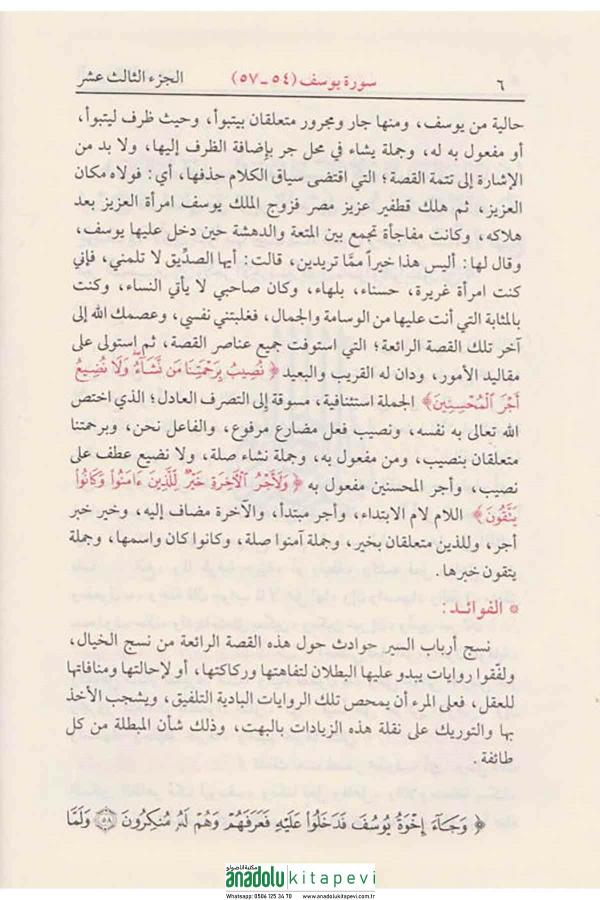 ٦ سورة يوسف (٥٤-٥٧) الجزء الثالث عشر
حالية من يوسف، ومنها جار ومجرور متعلقان بيتبوأ، وحيث ظرف ليتبوأ،
أو مفعول به له، وجملة يشاء في محل جر بإضافة الظرف إليها، ولا بد من
الإشارة إلى تتمة القصة؛ التي اقتضى سياق الكلام حذفها، أي: فولاه مكان
العزيز، ثم هلك قطفير عزيز مصر فزوج الملك يوسف امرأة العزيز بعد
هلاكه، وكانت مفاجأة تجمع بين المتعة والدهشة حين دخل عليها يوسف،
وقال لها: أليس هذا خيراً ممَّا تريدين، قالت: أيها الصدِّيق لا تلمني، فإني
كنت امرأة غريرة، حسناء، بلهاء، وكان صاحبي لا يأتي النساء، وكنت
بالمثابة التي أنت عليها من الوسامة والجمال، فغلبتني نفسي، وعصمك الله إلى
آخر تلك القصة الرائعة؛ التي استوفت جميع عناصر القصة، ثم استولى على
مقاليد الأمور، ودان له القريب والبعيد ﴿ نُصِيبُ بِرَحْمَتِنَا مَن نَّشَآءُ وَلَا نُضِيعُ
أَجْرَ الْمُحْسِنِينَ﴾ الجملة استئنافية، مسوقة إلى التصرف العادل؛ الذي اختص
الله تعالى به نفسه، ونصيب فعل مضارع مرفوع، والفاعل نحن، وبرحمتنا
متعلقان بنصيب، ومن مفعول به، وجملة نشاء صلة، ولا نضيع عطف على
نصيب، وأجر المحسنين مفعول به ﴿ وَلَأَجْرُ الْآخِرَةِ خَيْرٌ لِّلَّذِينَ ءَامَنُواْ وَكَانُواْ
يَتَّقُونَ ﴾ اللام لام الابتداء، وأجر مبتدأ، والآخرة مضاف إليه، وخير خبر
أجر، وللذين متعلقان بخير، وجملة آمنوا صلة، وكانوا كان واسمها، وجملة
يتقون خبرها.
* الفوائد:
نسج أرباب السير حوادث حول هذه القصة الرائعة من نسج الخيال،
ولفّقوا روايات يبدو عليها البطلان لتفاهتها وركاكتها، أو لإحالتها ومنافاتها
للعقل، فعلى المرء أن يمحص تلك الروايات البادية التلفيق، ويشجب الأخذ
بها والتوريك على نقلة هذه الزيادات بالبهت، وذلك شأن المبطلة من كل
طائفة.
﴿ وَجَآءَ إِخْوَةُ يُوسُفَ فَدَخَلُواْ عَلَيْهِ فَعَرَفَهُمْ وَهُمْ لَهُۥ مُنكِرُونَ ٥٨ وَلَمَّا
مكتبة اناضولو
anadolu kitapevi
Whatsapp: 0506 125 34 70 www.anadolukitapevi.com.tr